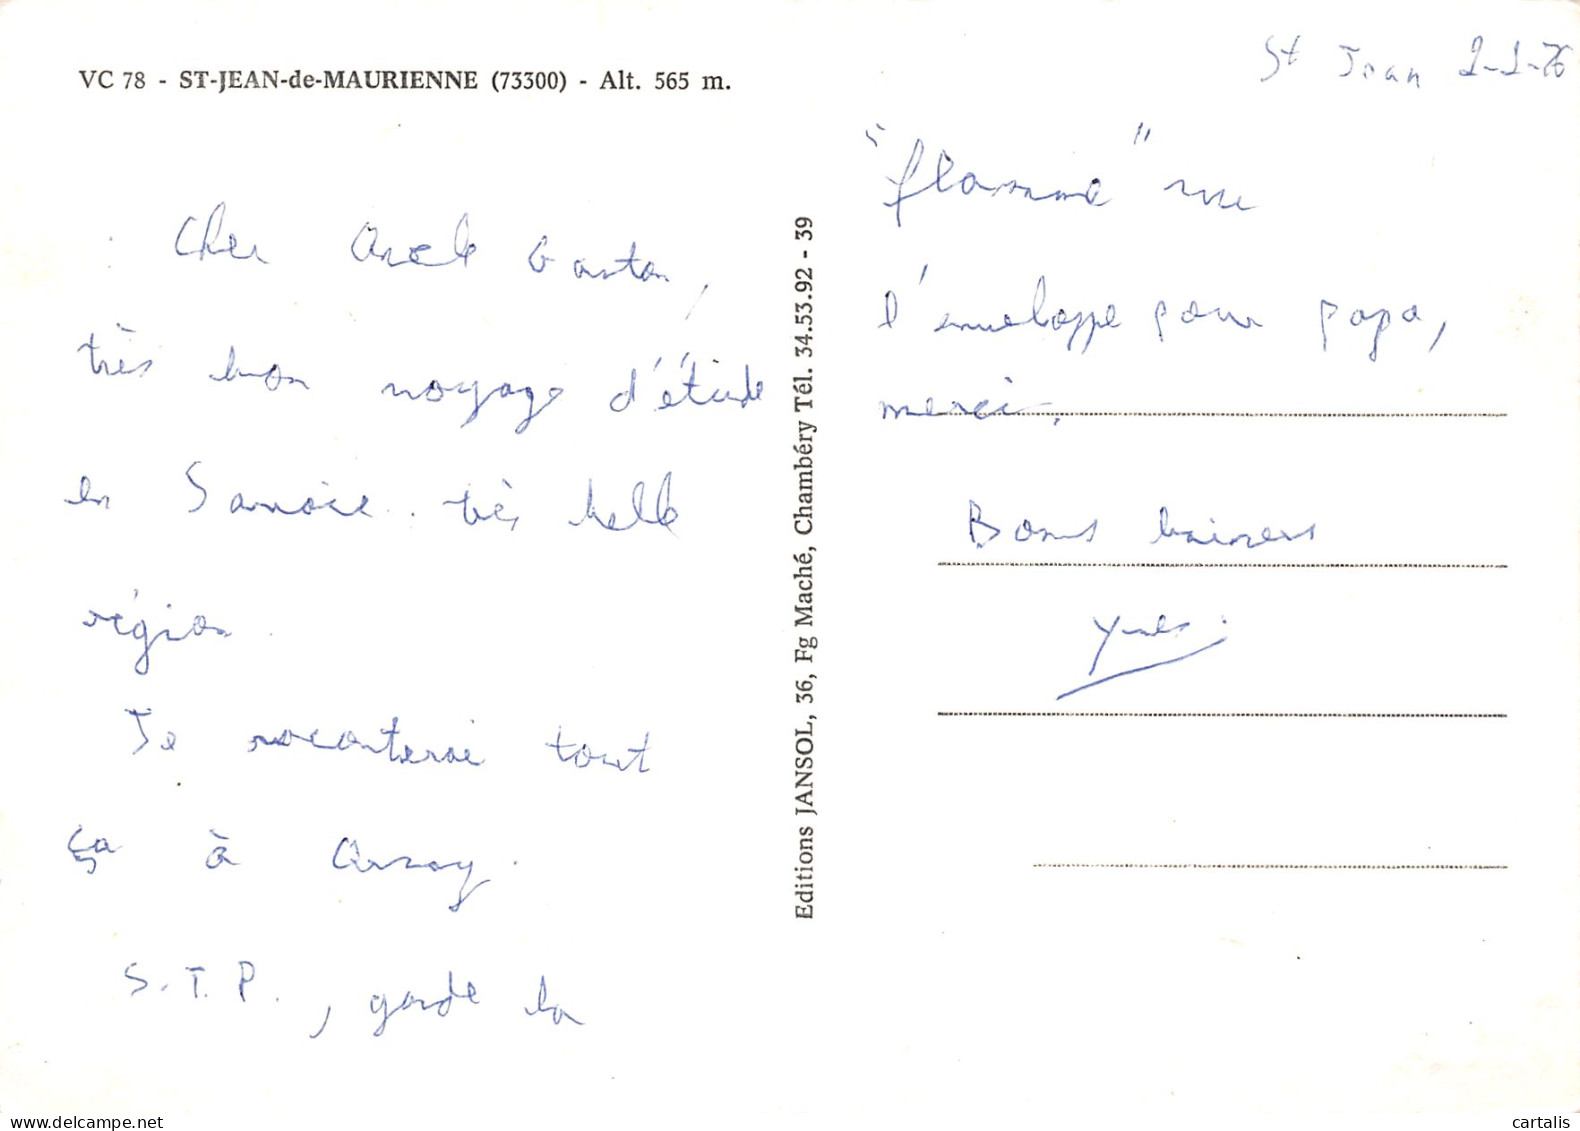 VC 78 - ST-JEAN-de-MAURIENNE (73300) - Alt. 565 m.
Cher Oncle Gaston,
très bon voyage d'étude
en Savoie. très belle
région.
Je raconterai tout
ça à
S.T.P., garde la
Editions JANSOL, 36, Fg Maché, Chambéry Tél. 34.53.92 - 39
St Jean
"flamme" sur
l'enveloppe pour papa,
merci.
Bons baisers
Yves.
cartalis